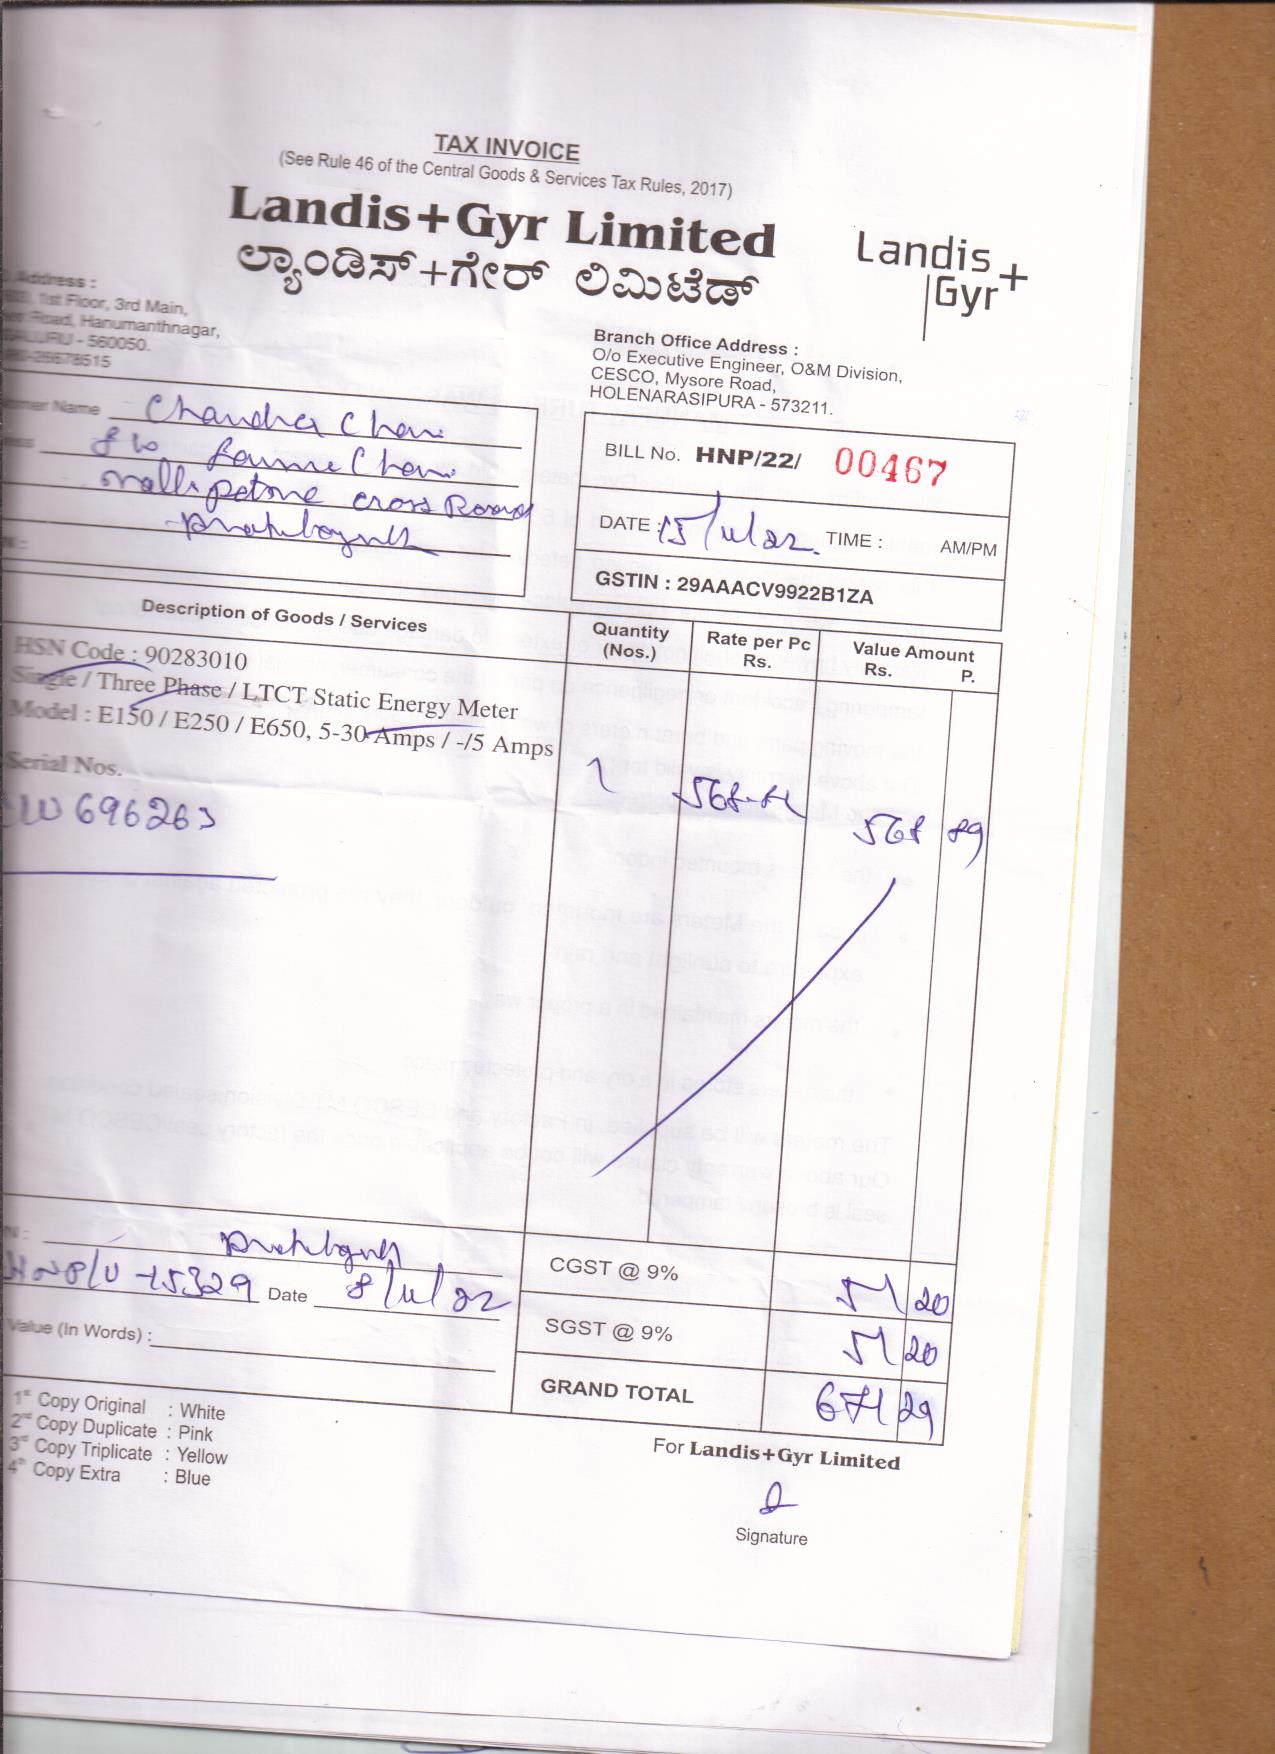 TAX INVOICE
(See Rule 46 of the Central Goods & Services Tax Rules, 2017)
Landis+Gyr Limited
ಲ್ಯಾಂಡಿಸ್+ಗೇರ್ ಲಿಮಿಟೆಡ್
Landis
Gyr+
Address :
1st Floor, 3rd Main,
Road, Hanumanthnagar,
- 560050.
26678515
Branch Office Address :
O/o Executive Engineer, O&M Division,
CESCO, Mysore Road,
HOLENARASIPURA - 573211.
Name Chandra
cross Road
BILL No. HNP/22/ 00467
DATE : 15/11/22 TIME : AM/PM
GSTIN : 29AAACV9922B1ZA
Description of Goods / Services Quantity (Nos.) Rate per Pc Rs. Value Amount Rs. P.
HSN Code : 90283010
Single / Three Phase / LTCT Static Energy Meter
Model : E150 / E250 / E650, 5-30 Amps / -/5 Amps
Serial Nos.
696263
1 568 89
15329 Date 8/11/22
Value (In Words) :
CGST @ 9% 51 20
SGST @ 9% 51 20
GRAND TOTAL 671 29
1st Copy Original : White
2nd Copy Duplicate : Pink
3rd Copy Triplicate : Yellow
4th Copy Extra : Blue
For Landis+Gyr Limited
Signature